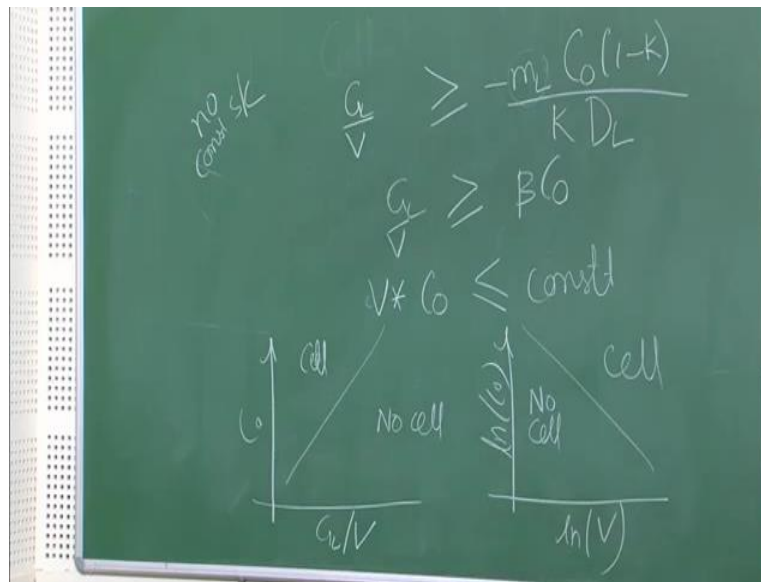 no
const sk
G_L/V ≥ -m_L C_0(1-K)/K D_L
G_L/V ≥ βC_0
V* C_0 ≤ constt
Cell
No cell
C_0
G_L/V
Cell
No
Cell
ln(C_0)
ln(V)